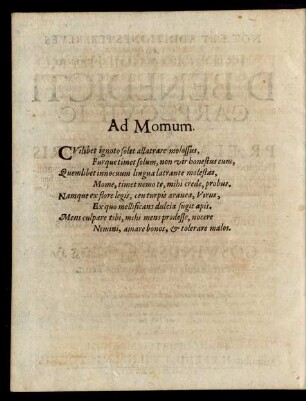 Ad Momum.
CVilibet ignoto solet allatrare molossus,
Furque timet solum, non vir honestus eum,
Quemlibet innocuum lingua latrante molestas,
Mome, timet nemo te, mihi crede, probus.
Namque ex flore legis, ceu turpis aranea, Virus,
Ex quo mellificans dulcia sugit apis.
Mens culpare tibi, mihi mens prodesse, nocere
Nemini, amare bonos, & tolerare malos.